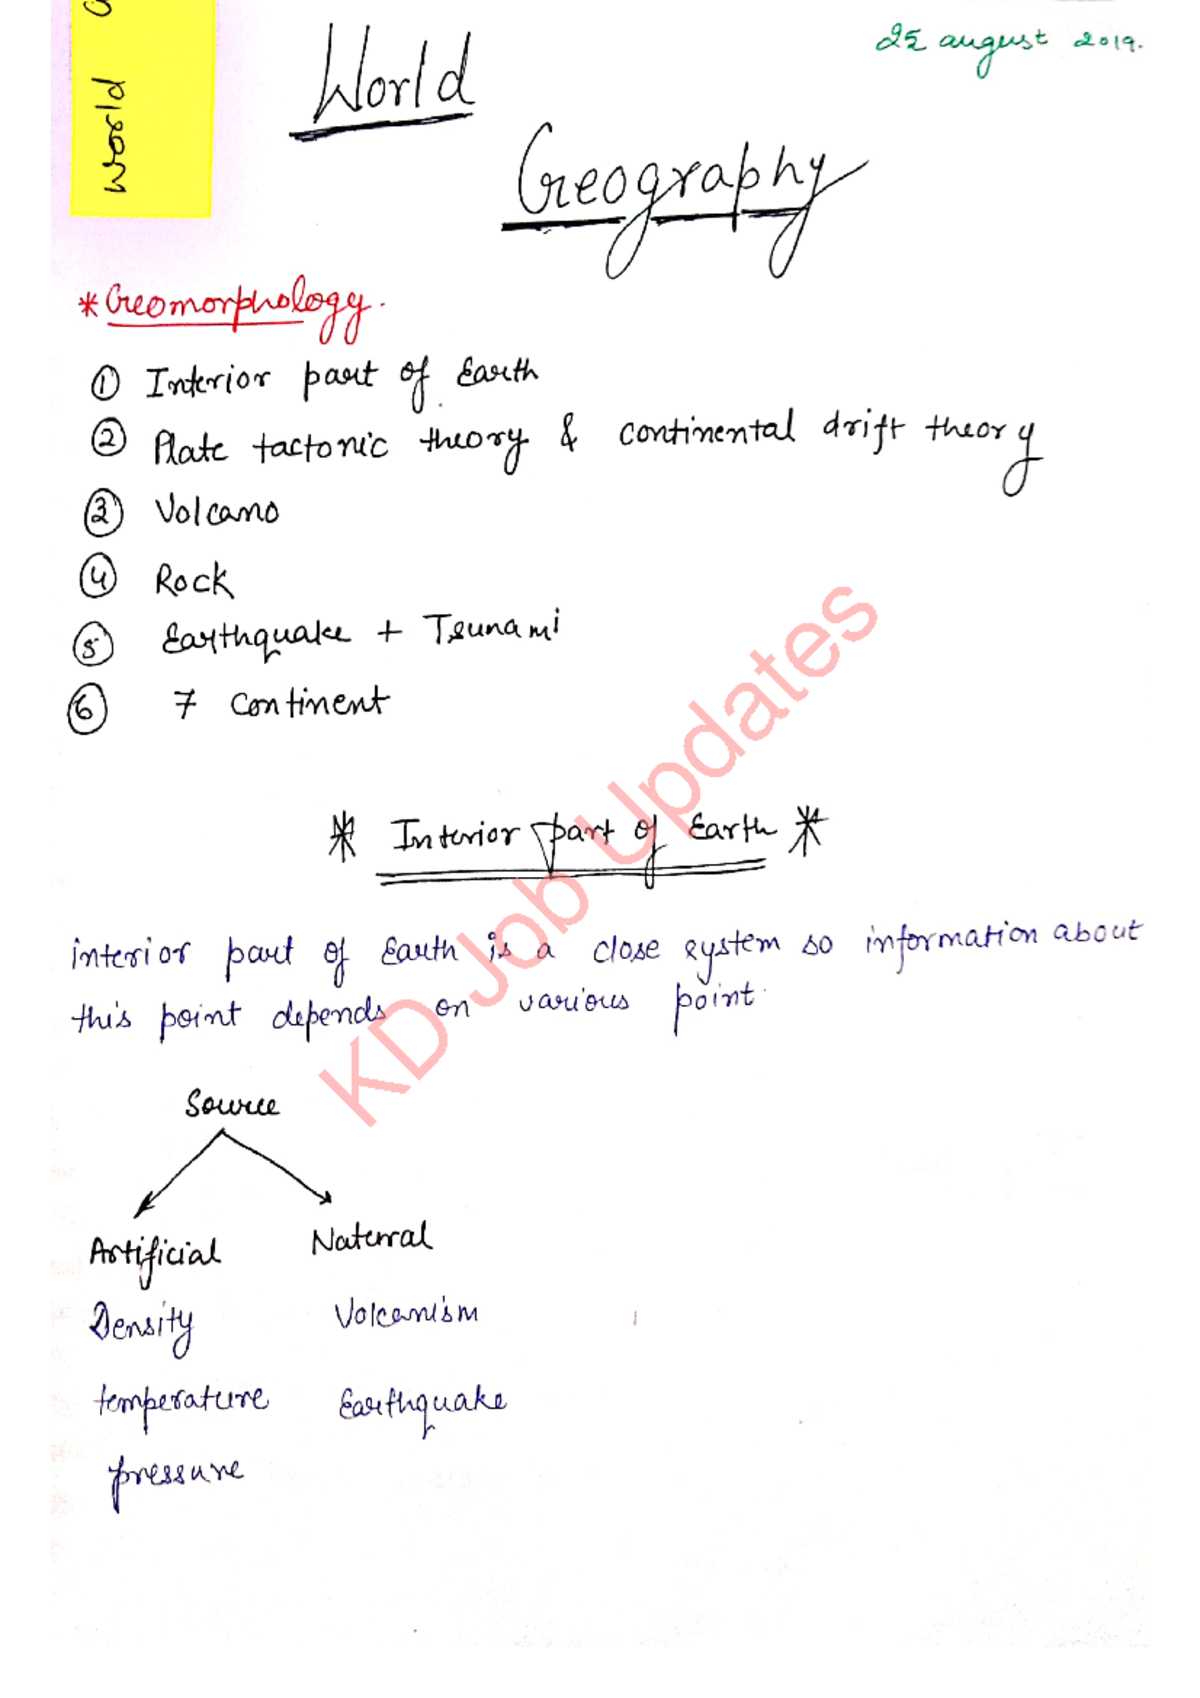 World G
25 august 2019.
World
Geography
* Geomorphology.
① Interior part of Earth
② Plate tactonic theory & continental drift theory
③ Volcano
④ Rock
⑤ Earthquake + Tsunami
⑥ 7 continent
* Interior part of Earth *
interior part of Earth is a close system so information about
this point depends on various point.
Source
Artificial Natural
Density Volcanism
temperature Earthquake
pressure
KD Job Updates